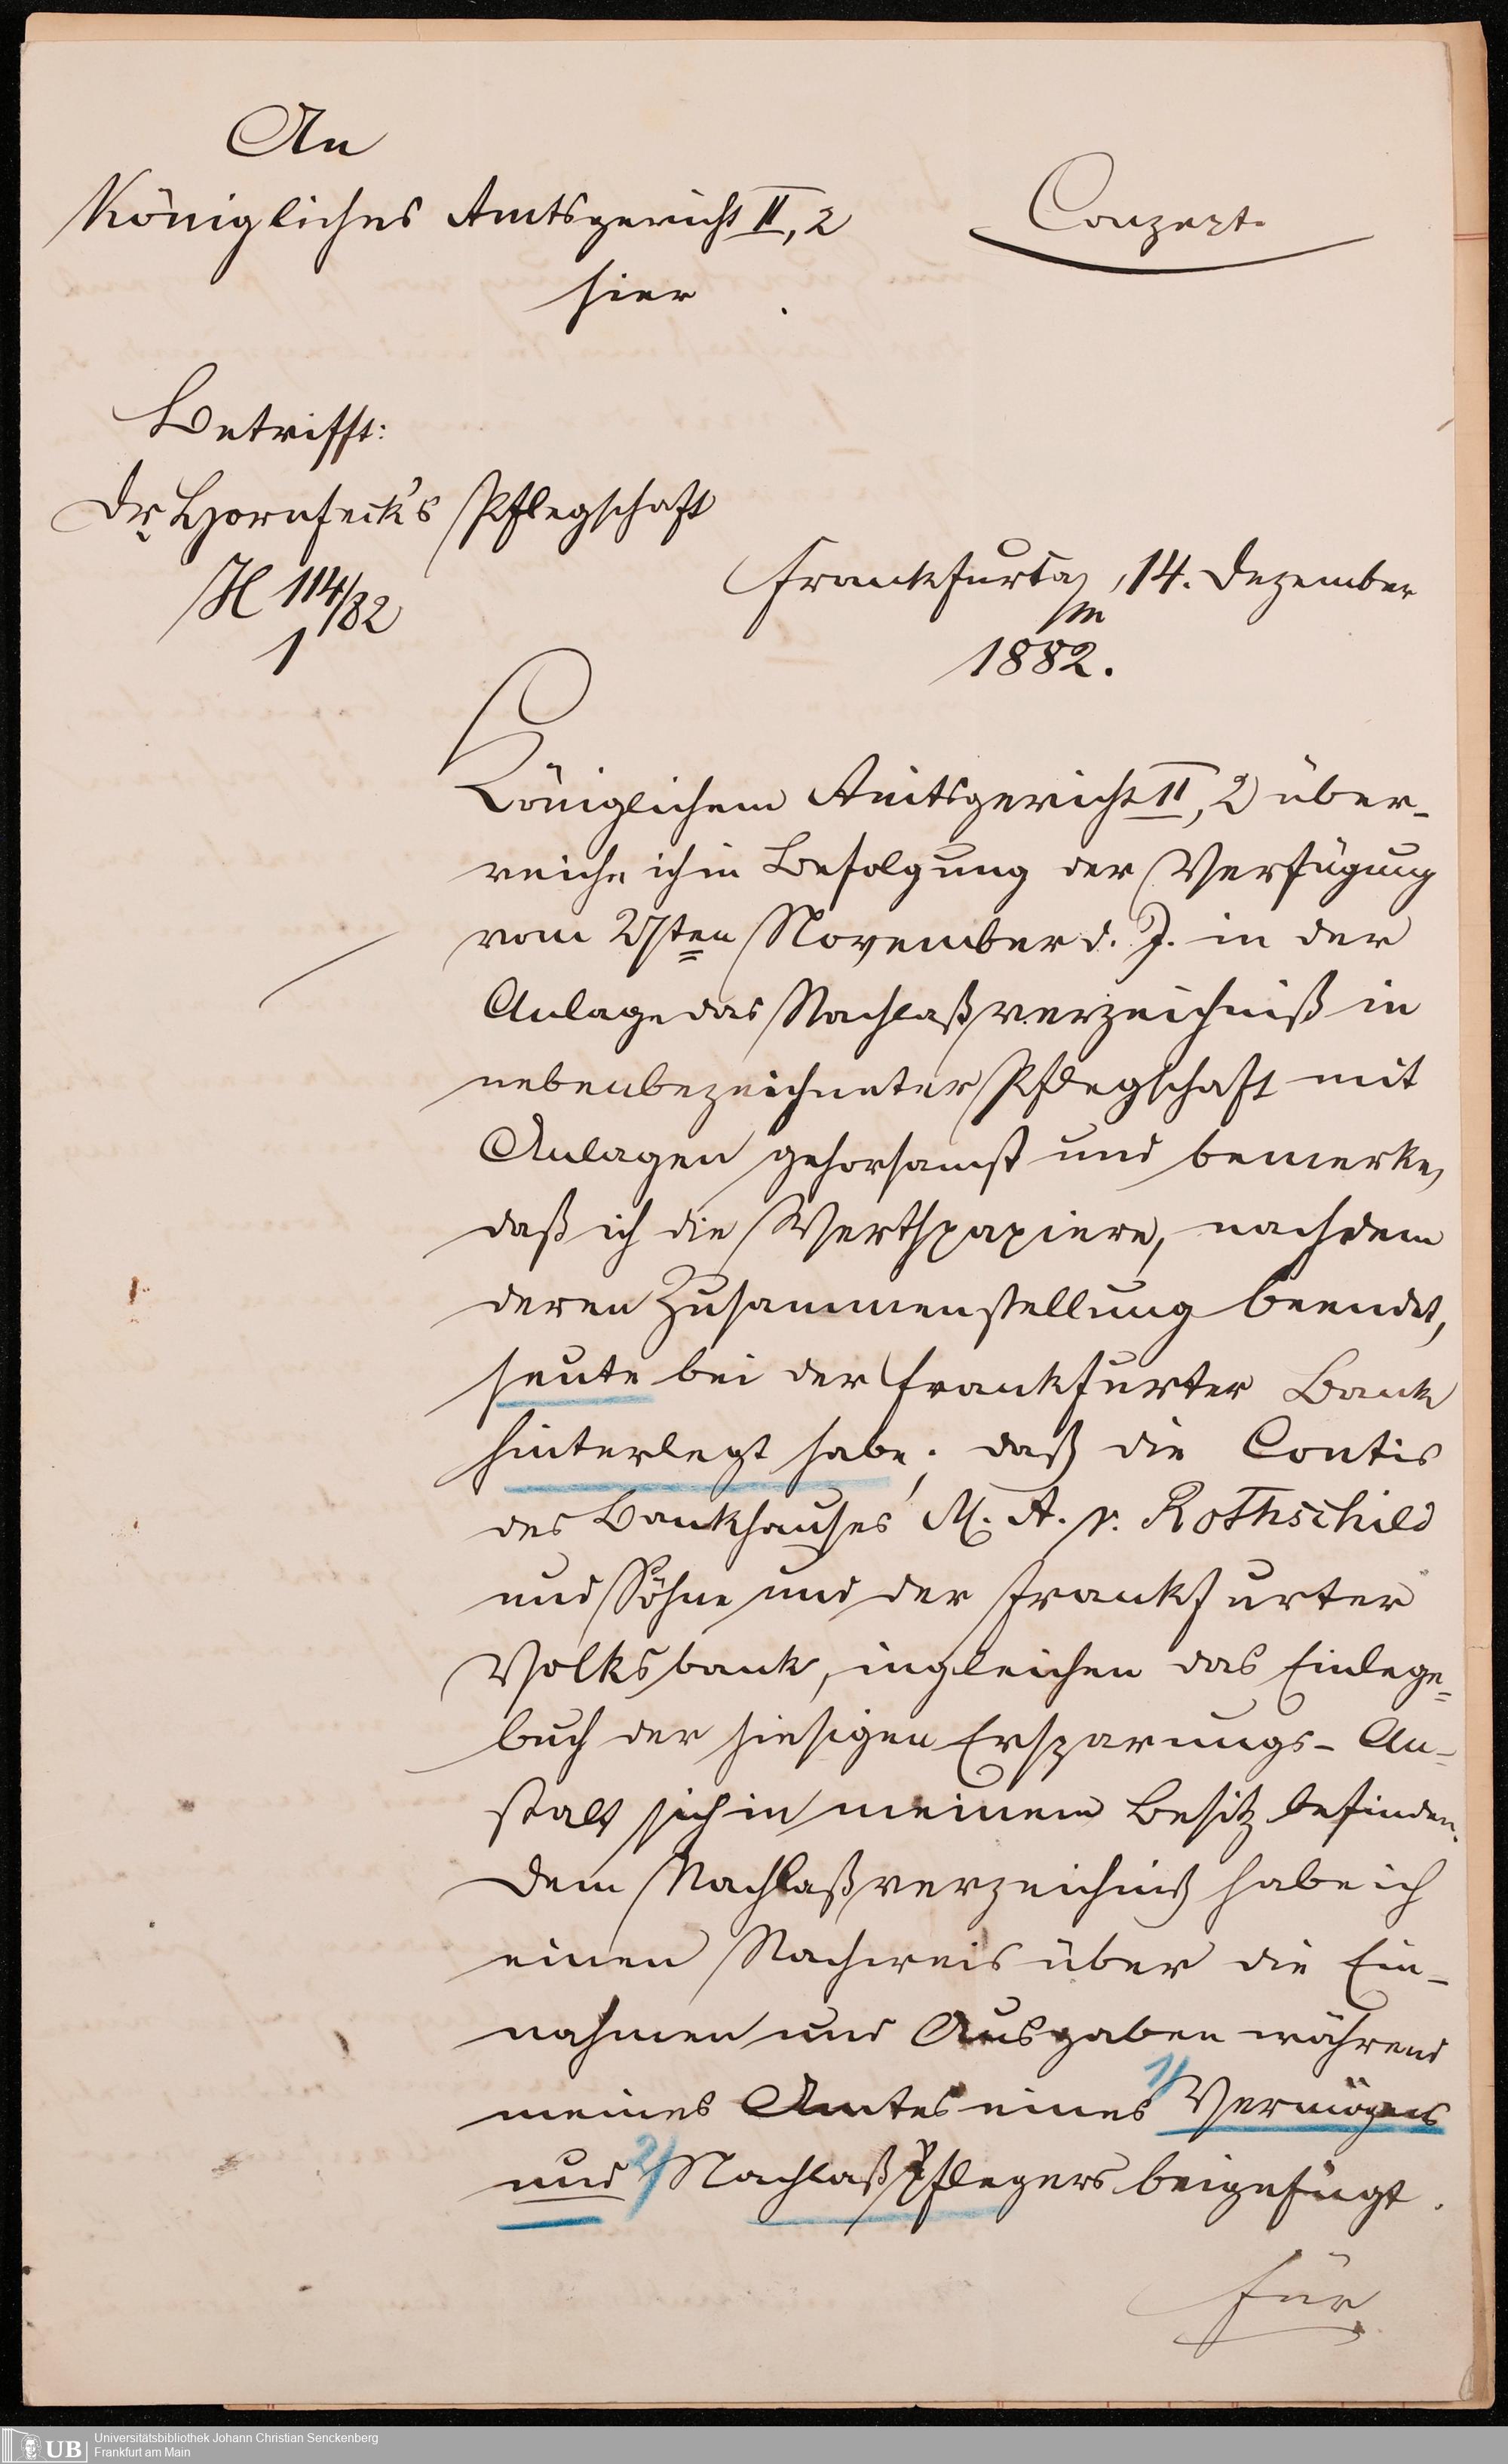 An
Königliches Amtsgericht II, 2
Conzept.
hier
Betrifft:
Dr. Hornfeck's Pflegschaft
H 114/82
1
Frankfurt a/m, 14. Dezember
1882.
Königlichem Amtsgericht II, 2 über-
reiche ich in Befolgung der Verfügung
vom 27sten November d. J. in der
Anlage das Nachlaßverzeichniß in
nebenbezeichneter Pflegschaft mit
Anlagen gehorsamst und bemerke,
daß ich die Werthpapiere, nachdem
deren Zusammenstellung beendet,
heute bei der Frankfurter Bank
hinterlegt habe; daß die Contis
des Bankhauses M. A. v. Rothschild
und Söhne und der Frankfurter
Volksbank, ingleichen das Einlege-
buch der hiesigen Ersparungs-An-
stalt sich in meinem Besitz befinden.
Dem Nachlaßverzeichniß habe ich
einen Nachweis über die Ein-
nahmen und Ausgaben während
meines Amtes eines 1/ Vermögens
und 2/ Nachlaßpflegers beigefügt.
Für
Universitätsbibliothek Johann Christian Senckenberg
UB
Frankfurt am Main